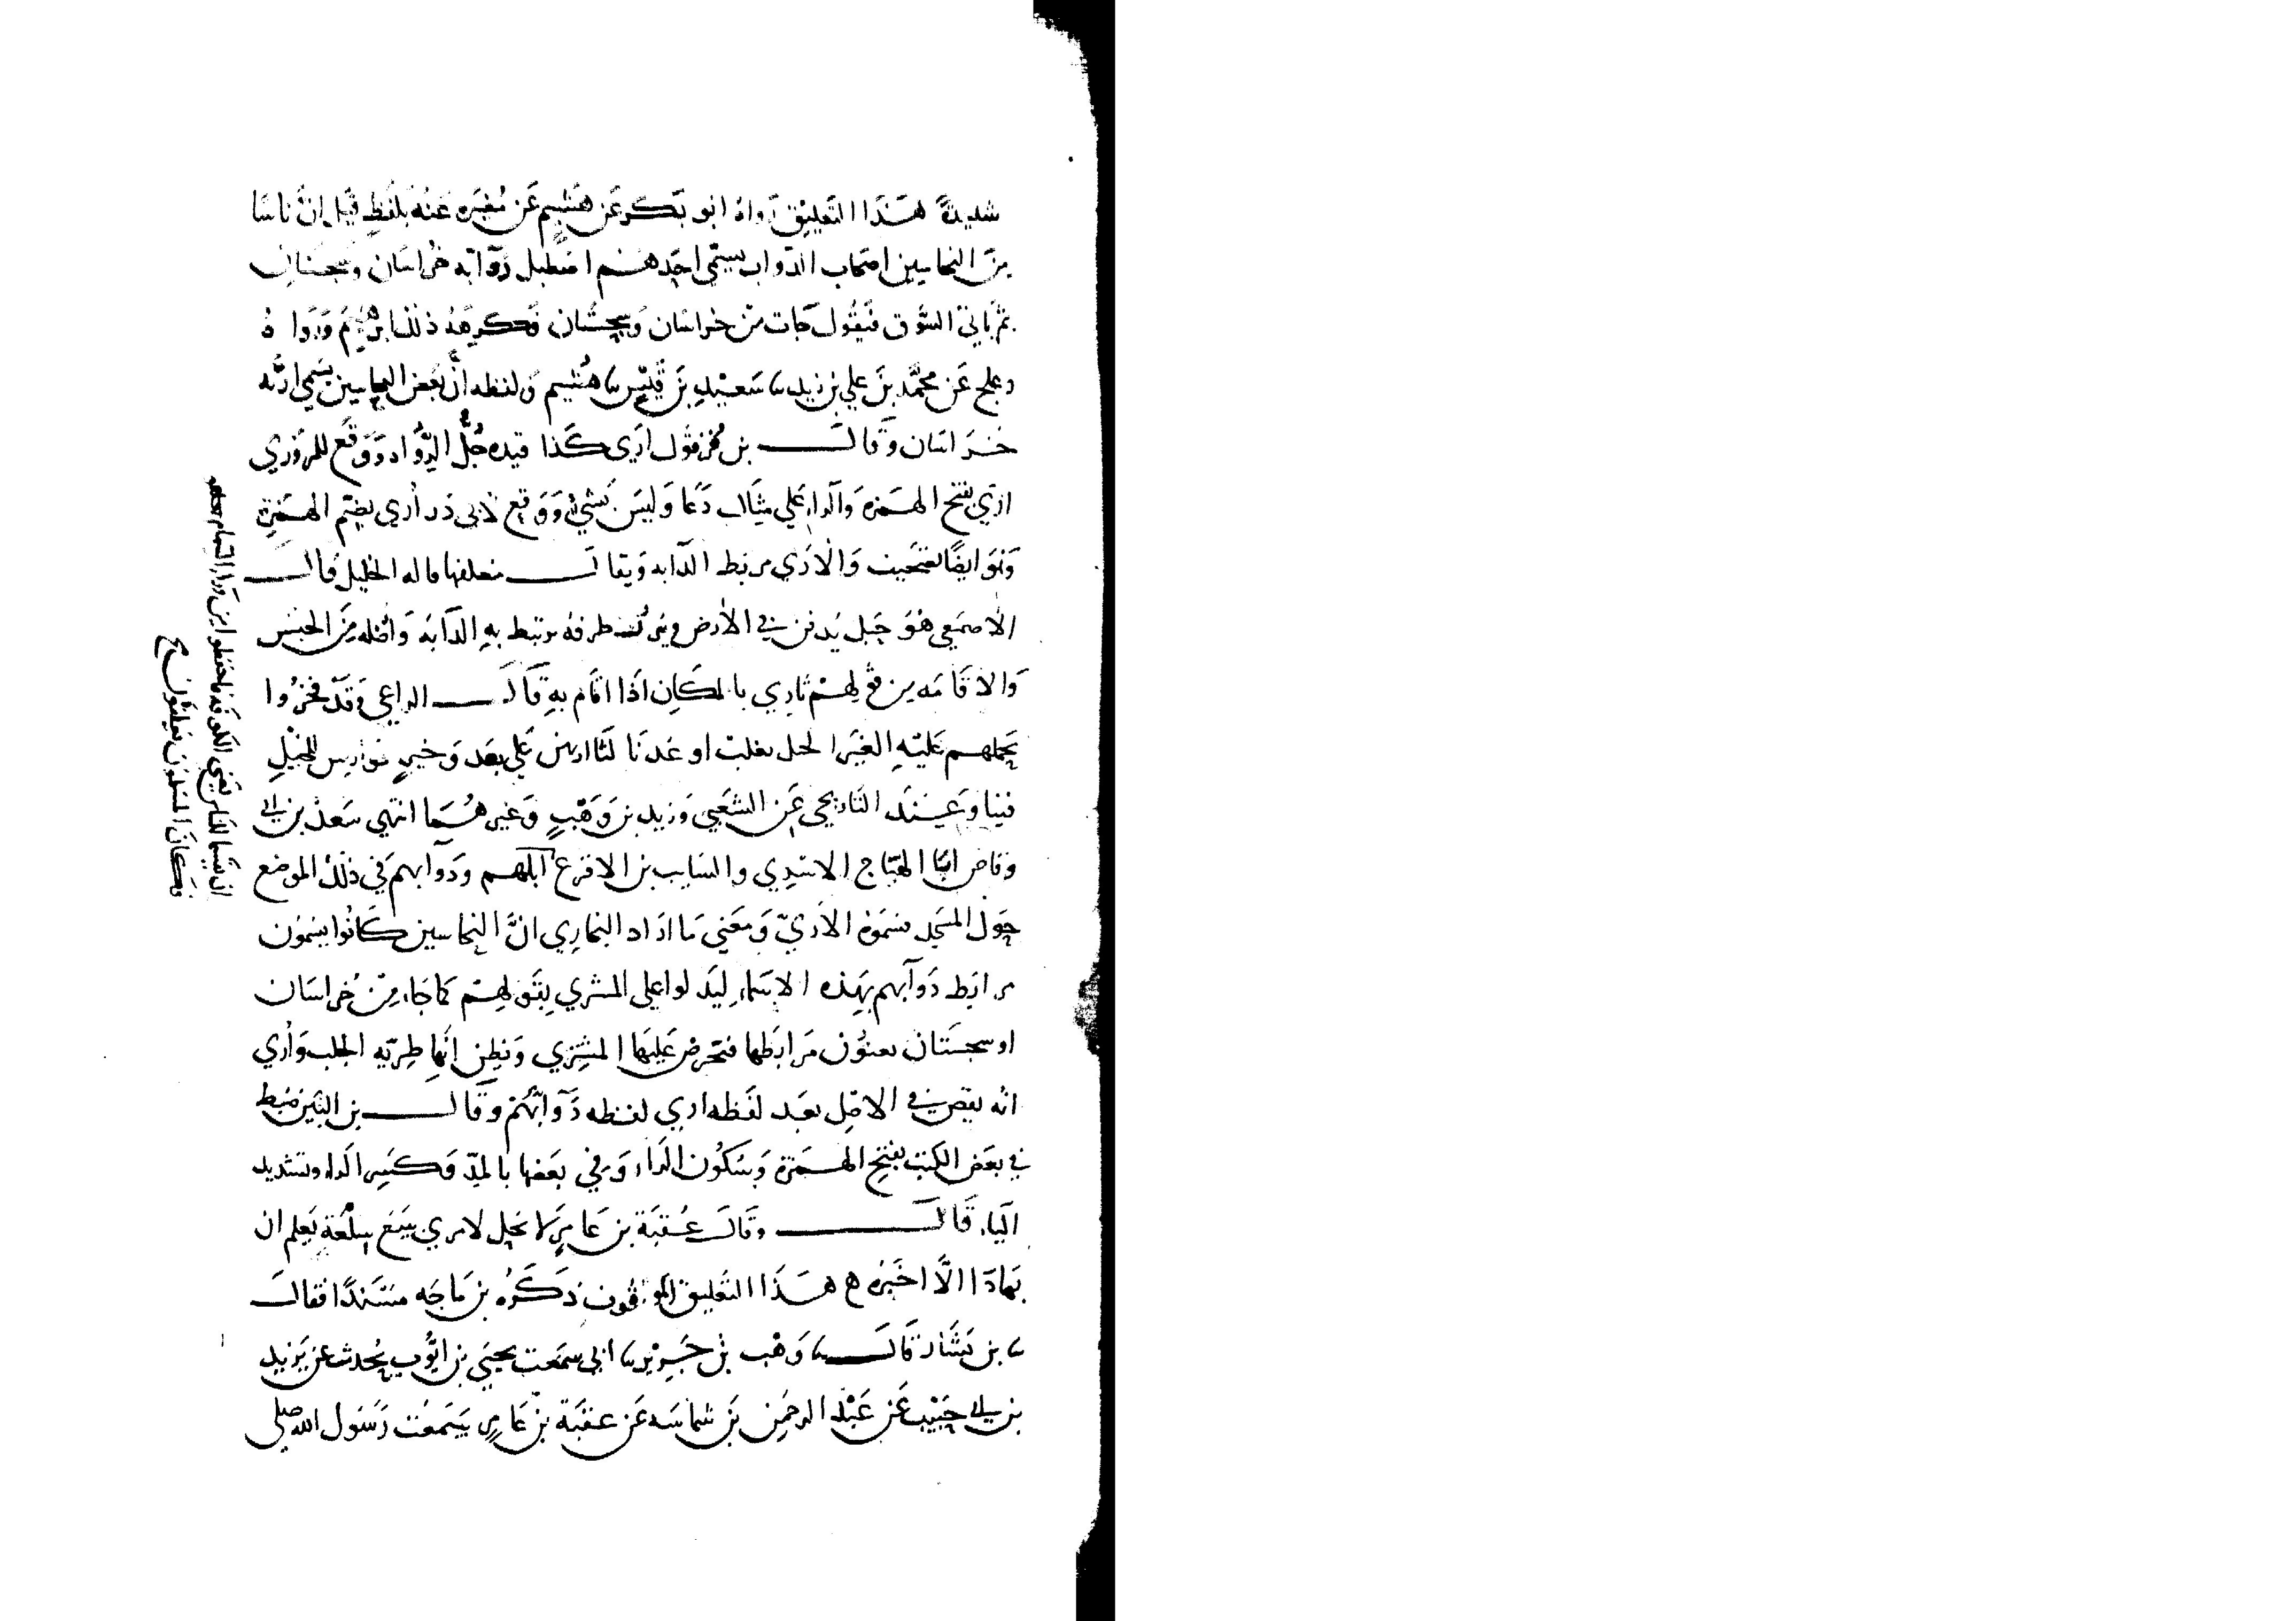 شديدة هَذا التعليق رَواهُ ابو بَكر عَن هشيم عَن مُغيَره عَنهُ بلفظِ قيل انَّ ناسًا
مِنَ النخاسين اصحاب الدّواب يسمّي احَدهُم اصطبل دَوّابه خراسَان وسجستان
ثم يَاتي السُّوق فيقُول جَات من خراسَان وسجستان فكره ذلك ابرهيم وَرَوا هُ
دعلج عَن محمَّد بن علي بن زيد ثنا سَعيد بن ثنا هُشيم وَلفظه أنّ بَعض النخاسين يسَمي اريّه
خرَاسَان وَقَالَ بن قرقول اري كَذا قيده جُلُّ الرّواه وَوقَع للمروَزي
ارَي بفتح الهَمزه وَالراء علي مثَال دَعَا وَليسَ بشيٍ وَوَقع لابي ذَر أُري بضم الهَمزة
وَهوَ ايضًا تصحيف وَالارَي مربَط الدّابه وَيقال معلفها قاله الخليل قال
الاصمَعي هُوَ حَبل يُدفن في الأرض ويبرز طرفه يرتبط بهِ الدّابة وَاصله مِنَ الحبس
وَالاقامَه من قولهم تأري بالمكَان اذا اقام بهِ قَالَ الراعي وَقَد فخرُوا
بخيلهم عَليه لنا اريهن عَلي مَعَد وَخير فوَارس للخيلِ
فينا وَعندَ التاريحي عَن الشعَبي وَزيد بن وَهْبٍ وَغيرهُما انتهي سَعدْ بن ابي
وقاص ابَا الهيّاج الاسَدي والسَايب بن الاقرع ابلهم ودَوَابهم في ذَلكَ الموضع
حَول المسَجد فسَموهُ الآرِيّ وَمَعني مَا ارَاد البخارِي انَّ النخاسين كَانُوا يسَمون
مرابَط دَوَابهم بهَذه الاسَماءِ ليَدلوا علي المشتري بِقَولهم كما جَاء مِنْ خراسَان
او سجستَان يعنوُن مَرابَطها فتحرص عَليَها المشتِري وَيظن انّهَا طريّه الجلب وَأُري
انه نقص في الاصل بعَد لفَظه اري لفظه دَوابّهم وقال بن التين ضبط
في بعَض الكتب بفتح الهَمزة وَسُكون الرَاء وَفي بعَضها بالمدّ وَكسَر الراء وتشديد
اليَاء قَالَ وقَالَ عُقبَة بن عَامرٍ لا يحل لامري يبيَع سِلْعَةٍ يَعلم ان
بهَا دَا الَّا اخَبَره هَذا التعَليق الموقوف ذكَرهُ بن مَاجَه مسَندًا فقالَ
ثنا بن بَشَار قَالَ ثنا وَهْب بن جَرير ثنا ابي سَمَعت يحيَي بن ايُّوب يُحدث عن يزيد
بن ابي حَبيب عَن عَبْد الرحمَن بن شماسَه عَن عقبَة بن عَامرٍ سَمَعت رَسُول الله صَلي